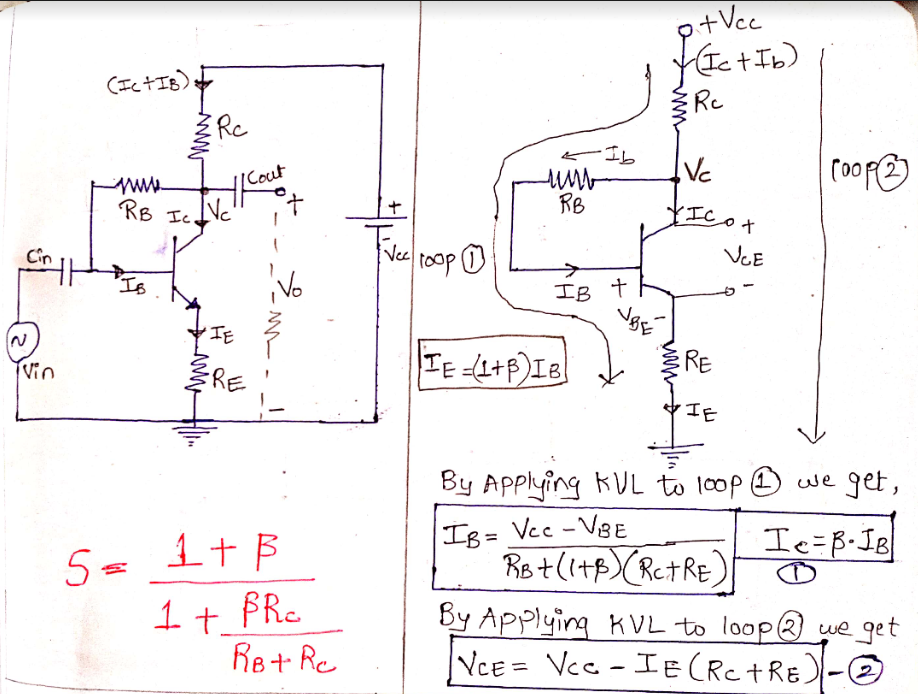 (Ic+IB)
Rc
Cout
+
RB
Ic
Vc
+
-
Vcc
Cin
IB
Vo
IE
Vin
RE
-
S = 1+β / 1 + βRc / RB + Rc
+Vcc
(Ic+Ib)
Rc
Ib
Vc
loop ②
RB
Ic
+
VCE
loop ①
IB
+
-
VBE -
IE =(1+β)IB
RE
IE
By Applying KVL to loop ① we get,
IB = Vcc - VBE / RB+(1+β)(Rc+RE)
Ic = β·IB
①
By Applying KVL to loop ② we get
VCE = Vcc - IE (Rc+RE) - ②